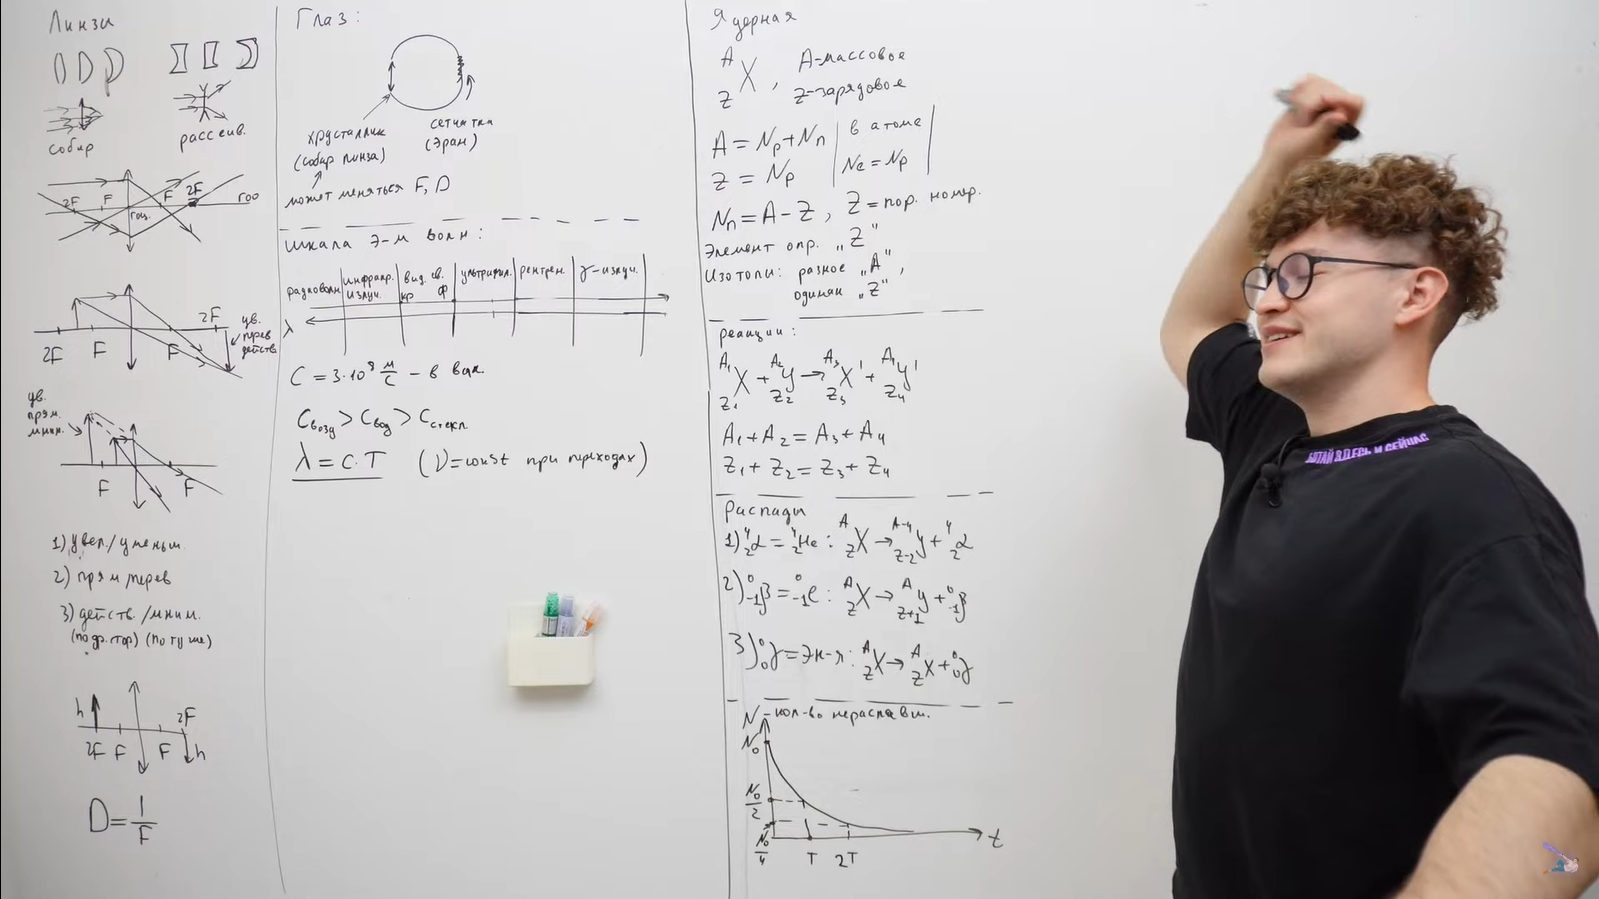 Линзы
собир
рассеив.
2F F F 2F ГОО
ГОЦ.
2F
ув.
перев
действ
2F F F
ув.
прям.
мним.
F F
1) увел./уменьш.
2) прям/перев
3) действ./мним.
(по др. стор) (по ту же)
h 2F
2F F F h
D = 1/F
Глаз:
хрусталик
(собир линза)
сетчатка
(экран)
может меняться F, D
шкала э-м волн:
радиоволн | инфракр. излуч. | вид. св. кр ф | ультрафиол. | рентген. | γ-излуч.
λ
C = 3·10⁸ м/с - в вак.
Cвозд > Cвод > Cстекл
λ = C·T (ν=const при переходах)
Ядерная
ᴬ_Z X, A-массовое
Z-зарядовое
A = Np + Nn | в атоме
Z = Np | Ne = Np
Nn = A - Z, Z = пор. номер.
Элемент опр. „Z"
Изотопы: разное „A",
одинак „Z"
реакции:
A₁ Z₁ X + A₂ Z₂ Y → A₃ Z₃ X' + A₄ Z₄ Y'
A₁ + A₂ = A₃ + A₄
Z₁ + Z₂ = Z₃ + Z₄
Распады
1) ⁴₂α = ⁴₂He: ᴬ_Z X → ᴬ⁻⁴_Z-2 Y + ⁴₂α
2) ⁰₋₁β = ⁰₋₁e: ᴬ_Z X → ᴬ_Z+1 Y + ⁰₋₁β
3) ⁰₀γ = эн-я: ᴬ_Z X → ᴬ_Z X + ⁰₀γ
N - кол-во нераспавш.
N₀
N₀/2
N₀/4
T 2T t
БОТАЙ ЗДЕСЬ И СЕЙЧАС